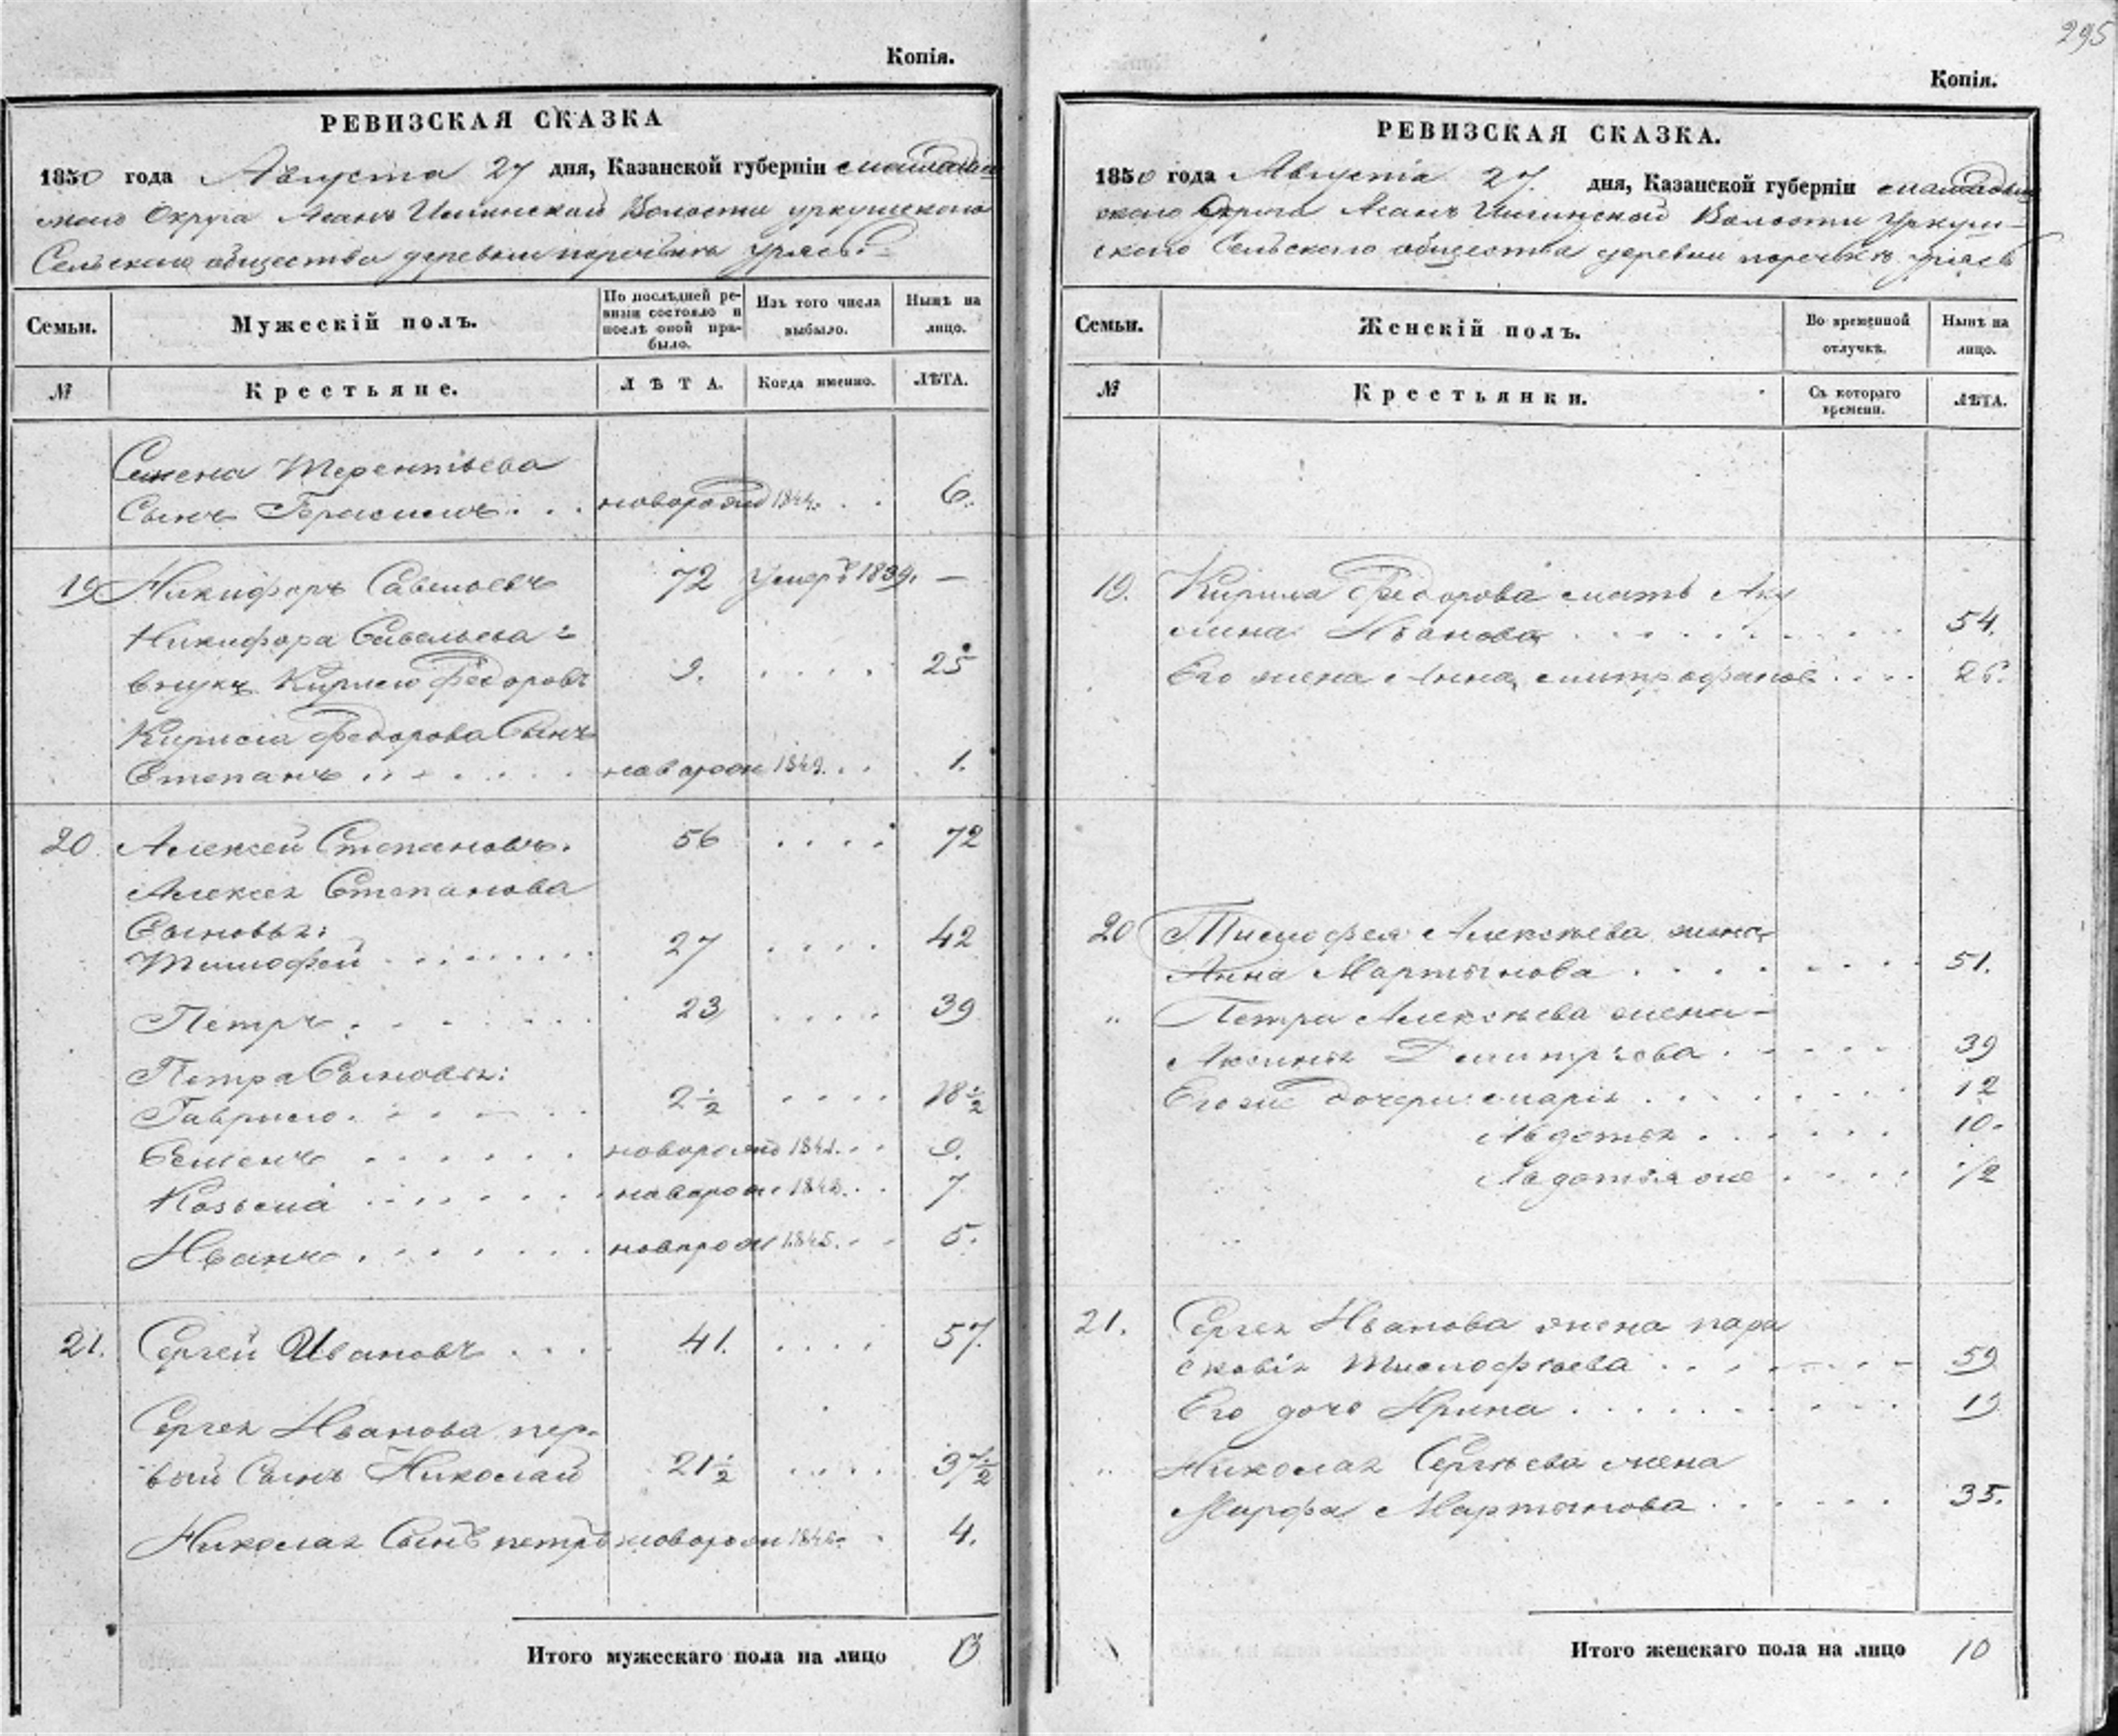 295
Копія.
РЕВИЗСКАЯ СКАЗКА
1850 года Августа 27 дня, Казанской губерніи мамадыш
скаго Округа Асанъ Илгинской Волости уркушского
Сельскаго общества деревни поречнъ уряевъ
Семьи.
Мужескій полъ.
По послѣдней ре-
визіи состояло и
послѣ оной при-
было.
Изъ того числа
выбыло.
Нынѣ на
лицо.
№
Крестьяне.
ЛѢТА.
Когда именно.
ЛѢТА.
Семена Терентьева
Сынъ Герасимъ новорожд 1844. 6.
19 Никифоръ Савельевъ 72 Умеръ 1839. —
Никифора Савельева
внукъ Кирило Федоровъ 9. 25
Кирила Федорова Сынъ
Степанъ новорож 1849. 1.
20 Алексей Степановъ. 56 72
Алексея Степанова
Сыновья:
Тимофей 27 42
Петръ 23 39
Петра Сыновья:
Гаврило. 2½ 18½
Семенъ новорожд 1841. 9.
Козьма новорож 1843. 7
Иванъ новорож 1845. 5.
21. Сергей Ивановъ 41. 57.
Сергея Иванова пер-
вой Сынъ Николай 21½ 37½
Николая Сынъ петръ новорож 1846. 4.
Итого мужескаго пола на лицо 13
Копія.
РЕВИЗСКАЯ СКАЗКА.
1850 года Августа 27. дня, Казанской губерніи мамадыш
скаго Округа Асанъ Илгинской Волости Уркуш-
скаго Сельскаго общества деревни поречнъ уряевъ
Семьи.
Женскій полъ.
Во временной
отлучкѣ.
Нынѣ на
лицо.
№
Крестьянки.
Съ котораго
времени.
ЛѢТА.
19. Кирила Федорова мать Аку
лина Иванова 54.
Его жена Анна митрофанова 26.
20 Тимофея Алексѣева жена
Анна Мартынова 51.
„ Петра Алексѣева жена
Аксинья Дмитріева 39
Его же дочери: марія 12
Авдотья 10.
Авдотья же ½
21. Сергея Иванова жена пара
сковія Тимофѣева 59
Его дочь Ирина 19
„ Николая Сергѣева жена
Марфа Мартынова 35.
Итого женскаго пола на лицо 10